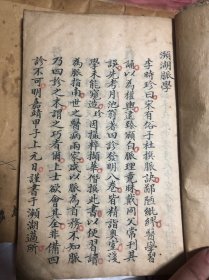 瀕湖脈學
李時珍曰宋有俗子杜撰脈訣鄙陋紕繆醫學習
誦以為權輿逮臻頒白脈理竟昧戴同父常刊其
誤先考月池翁著四診發明八卷皆精詣奧室淺
學未能窺造珍因撮粹擷華僭撰此書以便習讀
為脈指南世之醫病兩家咸以脈為首務不知脈
乃四診之末謂之巧者爾上士欲會其全非備四
診不可明嘉靖甲子上元日謹書于瀕湖薖所